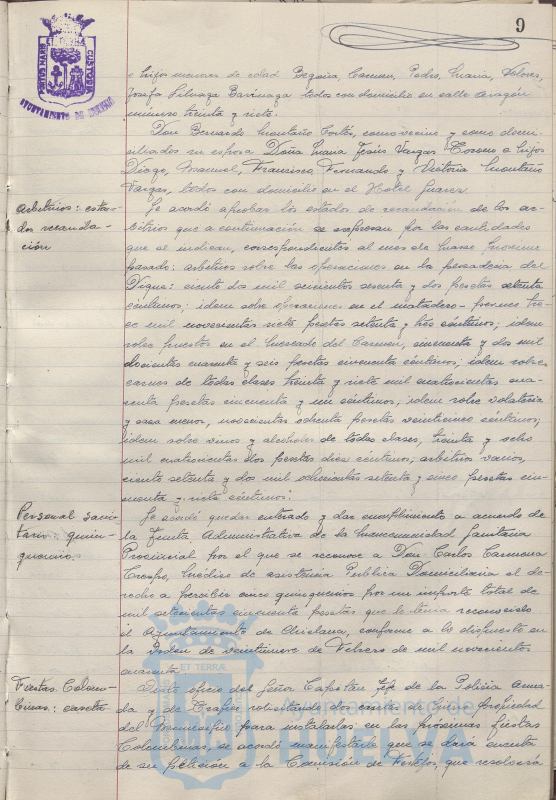 9
e hijos menores de edad Begoña, Carmen, Pedro, María, Dolores,
Josefa Lluaga Barinaga todos con domicilio en calle Aragón
número treinta y siete.
Don Bernardo Montaño Cortés, como vecino y como domi-
ciliados su esposa Doña María Jesús Vargas e hijos
Diego, Manuel, Francisco, Fernando y Victoria Montaño
Vargas, todos con domicilio en el Hotel Suárez.
Arbitrios: esta-
dos recauda-
ción
Se acordó aprobar los estados de recaudación de los ar-
bitrios que a continuación se expresan por las cantidades
que se indican, correspondientes al mes de Marzo próximo
pasado: arbitrios sobre las operaciones en la pescadería del
Dique: ciento dos mil seiscientos sesenta y dos pesetas setenta
céntimos; idem sobre operaciones en el matadero - porcino tre-
ce mil novecientas siete pesetas setenta y tres céntimos; idem
sobre puestos en el Mercado del Carmen, cincuenta y dos mil
doscientas cuarenta y seis pesetas cincuenta céntimos; idem sobre
carnes de todas clases treinta y siete mil cuatrocientas cua-
renta pesetas cincuenta y un céntimos; idem sobre volatería
y caza menor, novecientas ochenta pesetas veinticinco céntimos;
idem sobre vinos y alcoholes de todas clases, treinta y ocho
mil cuatrocientas dos pesetas diez céntimos; arbitrios varios,
ciento setenta y dos mil ochocientas setenta y cinco pesetas cin-
cuenta y siete céntimos.
Personal sani-
tario: quin-
quenio.
Se acordó quedar enterado y dar cumplimiento a acuerdo de
la Junta Administrativa de la Mancomunidad Sanitaria
Provincial por el que se reconoce a Don Carlos Carmona
Crespo, Médico de Asistencia Pública Domiciliaria el de-
recho a percibir cinco quinquenios por un importe total de
mil setecientas cincuenta pesetas que le tenía reconocido
el Ayuntamiento de conforme a lo dispuesto en
la Orden de veintinueve de Febrero de mil novecientos
cuarenta.
Fiestas Colom-
binas: caseta
Visto oficio del Señor Capitán Jefe de la Policía Arma-
da y de Tráfico solicitando dos casetas de propiedad
del Municipio para instalarlas en las próximas fiestas
Colombinas, se acordó manifestarle que se dará cuenta
de su petición a la Comisión de Festejos, que resolverá